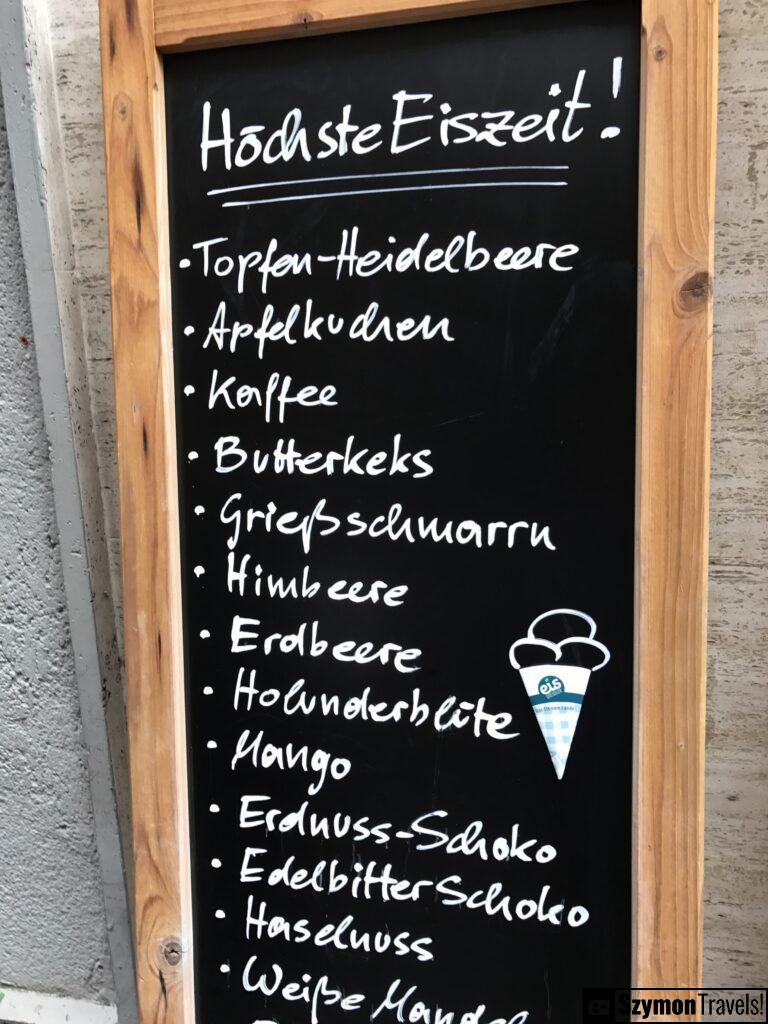 Höchste Eiszeit!
· Topfen-Heidelbeere
· Apfelkuchen
· Kaffee
· Butterkeks
· Grießschmarrn
· Himbeere
· Erdbeere
· Holunderblüte
· Mango
· Erdnuss-Schoko
· Edelbitter Schoko
· Haselnuss
· Weiße Mandel
eis
SzymonTravels!